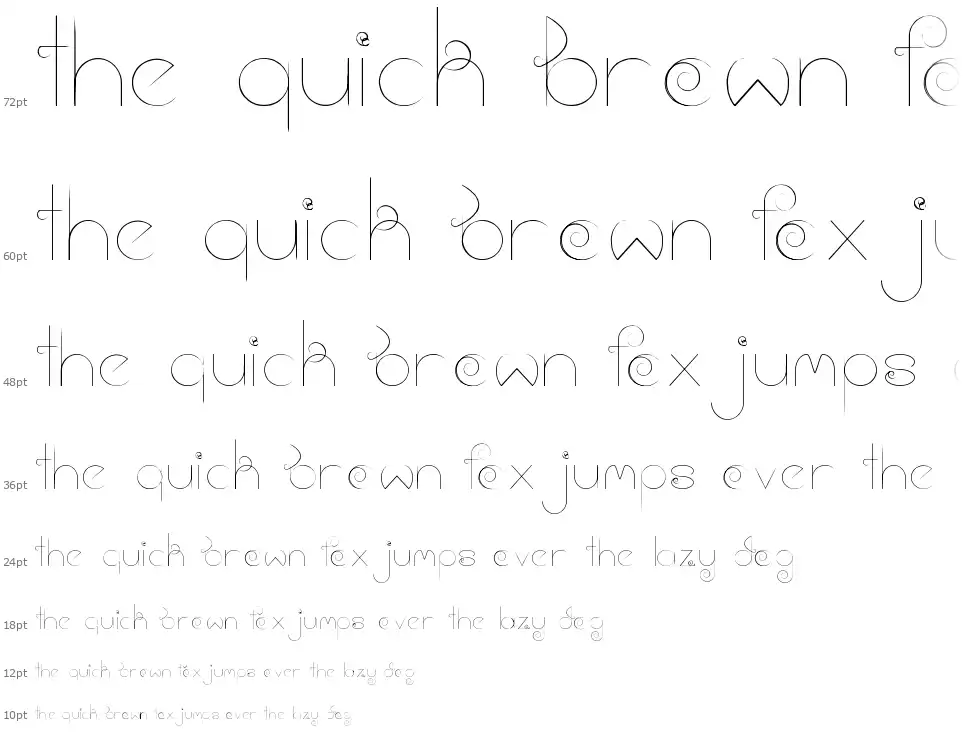 72pt the quick brown fo
60pt the quick brown fox ju
48pt the quick brown fox jumps o
36pt the quick brown fox jumps over the
24pt the quick brown fox jumps over the lazy dog
18pt the quick brown fox jumps over the lazy dog
12pt the quick brown fox jumps over the lazy dog
10pt the quick brown fox jumps over the lazy dog